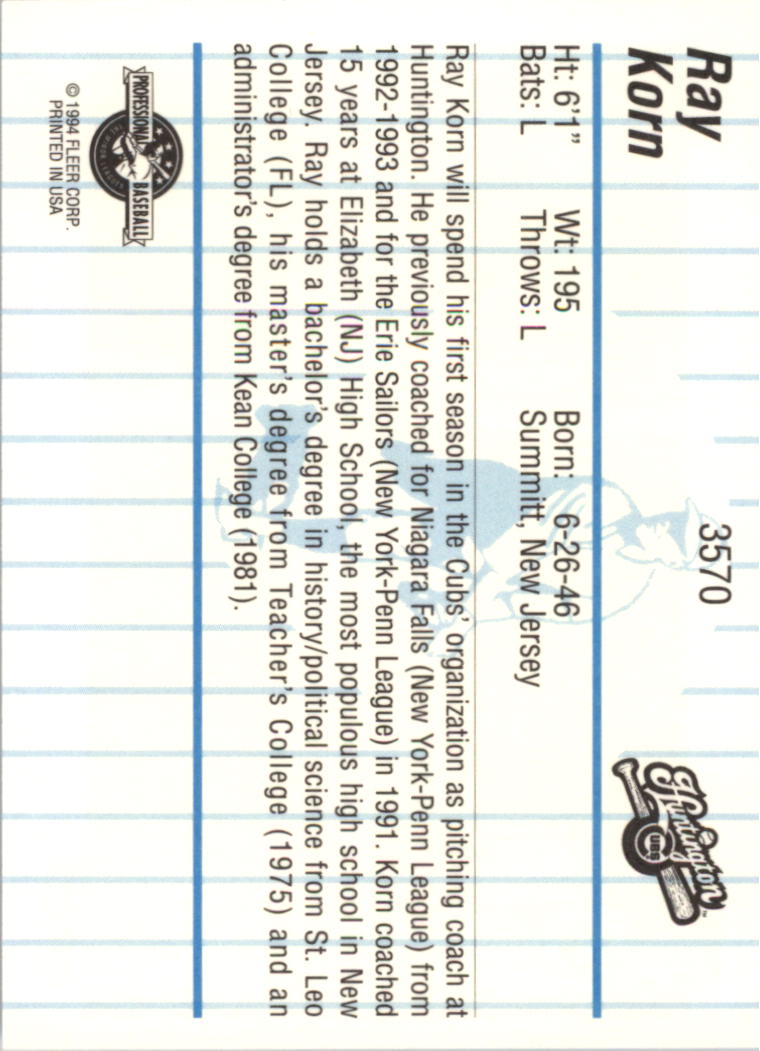 Ray
Korn
3570
Huntington
CUBS
™
Ht: 6'1" Wt: 195 Born: 6-26-46
Bats: L Throws: L Summitt, New Jersey
Ray Korn will spend his first season in the Cubs' organization as pitching coach at
Huntington. He previously coached for Niagara Falls (New York-Penn League) from
1992-1993 and for the Erie Sailors (New York-Penn League) in 1991. Korn coached
15 years at Elizabeth (NJ) High School, the most populous high school in New
Jersey. Ray holds a bachelor's degree in history/political science from St. Leo
College (FL), his master's degree from Teacher's College (1975) and an
administrator's degree from Kean College (1981).
PROFESSIONAL BASEBALL
© 1994 FLEER CORP.
PRINTED IN USA